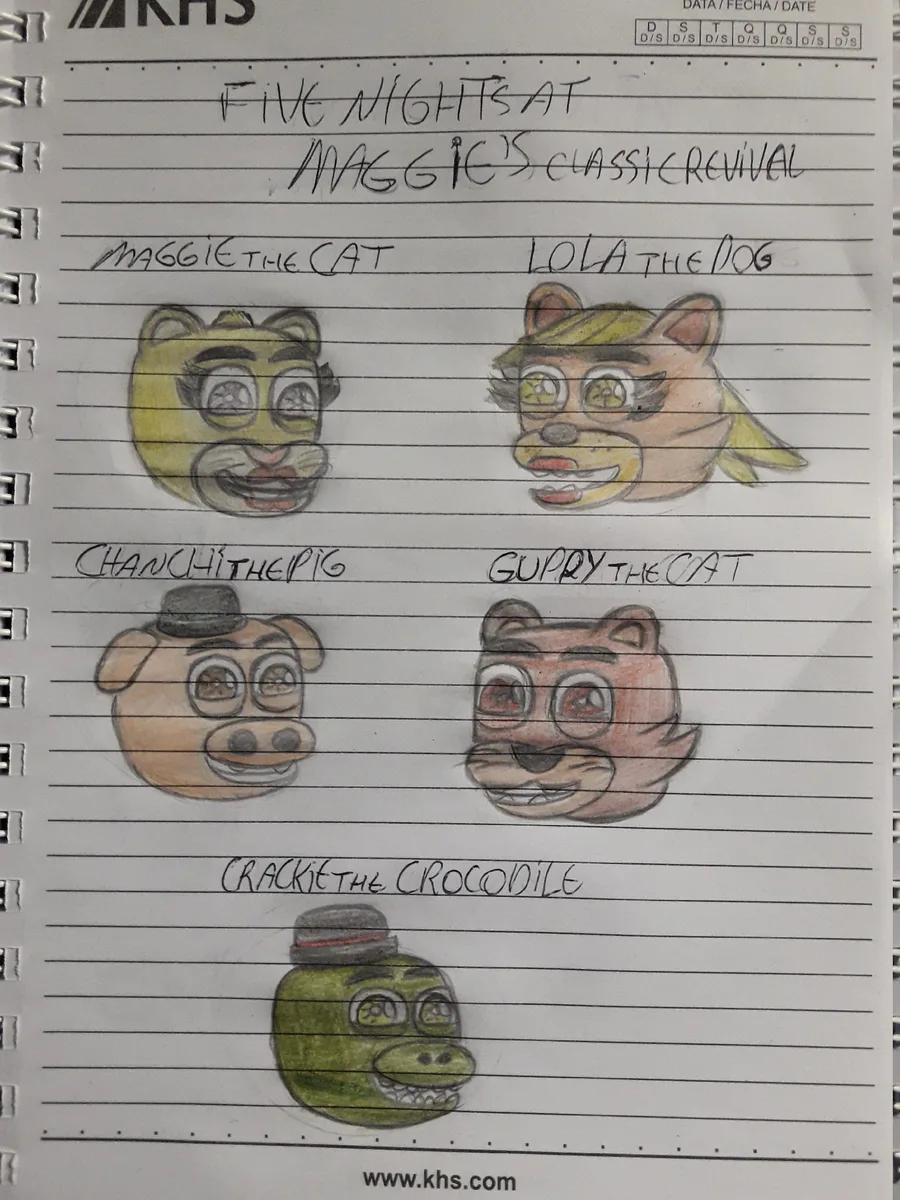 KHS
DATA / FECHA / DATE
D S T Q Q S S
D/S D/S D/S D/S D/S D/S D/S
FiVE NiGHTS AT
MAGGiE'S CLASSiC REViVAL
MAGGiE THE CAT
LOLA THE DOG
CHANCHi THE PiG
GUPPY THE CAT
CRACKiE THE CROCODiLE
www.khs.com